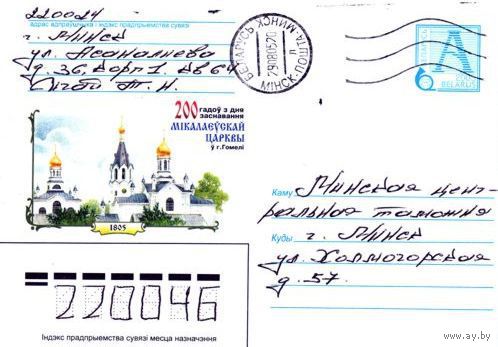 220024
адрас адпраўшчыка і індэкс прадпрыемства сувязі
г. Минск
ул. Асаналиева
д. 36, корп 1. кв 64
БЕЛАРУСЬ МІНСК
ПОШТА-МІНСК
29080520
А
BELARUS
200 гадоў з дня
заснавання
МІКАЛАЕЎСКАЙ
ЦАРКВЫ
ў г.Гомелі
1805
Каму Минская цент-
ральная таможня
Куды г. Минск
ул. Холмогорская
д. 57.
220046
Індэкс прадпрыемства сувязі месца назначэння
www.ay.by